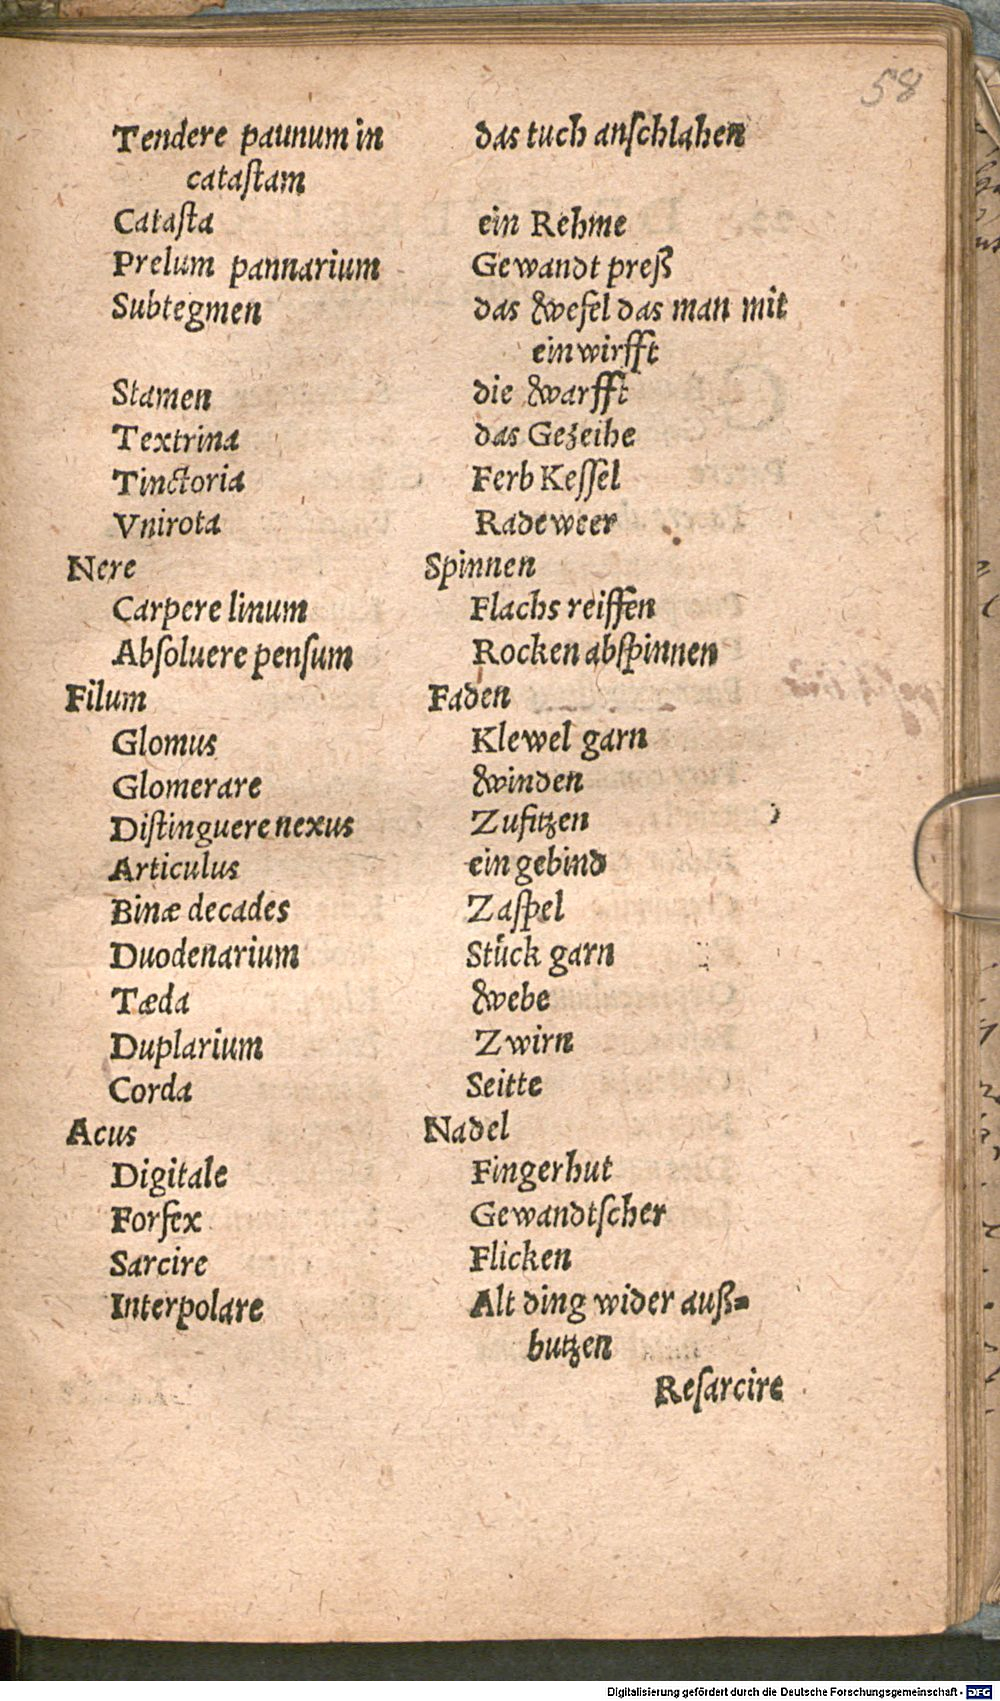 58
Tendere paunum in das tuch anſchlahen
cataſtam
Cataſta ein Rehme
Prelum pannarium Gewandt preß
Subtegmen das Wefel das man mit
einwirfft
Stamen die Warfft
Textrina das Gezeihe
Tinctoria Ferb Keſſel
Vnirota Radeweer
Nere Spinnen
Carpere linum Flachs reiffen
Abſoluere penſum Rocken abſpinnen
Filum Faden
Glomus Klewel garn
Glomerare Winden
Diſtinguere nexus Zufitzen
Articulus ein gebind
Binæ decades Zaſpel
Duodenarium Stück garn
Tæda Webe
Duplarium Zwirn
Corda Seitte
Acus Nadel
Digitale Fingerhut
Forfex Gewandtſcher
Sarcire Flicken
Interpolare Alt ding wider auß=
butzen
Reſarcire
Digitalisierung gefördert durch die Deutsche Forschungsgemeinschaft - DFG